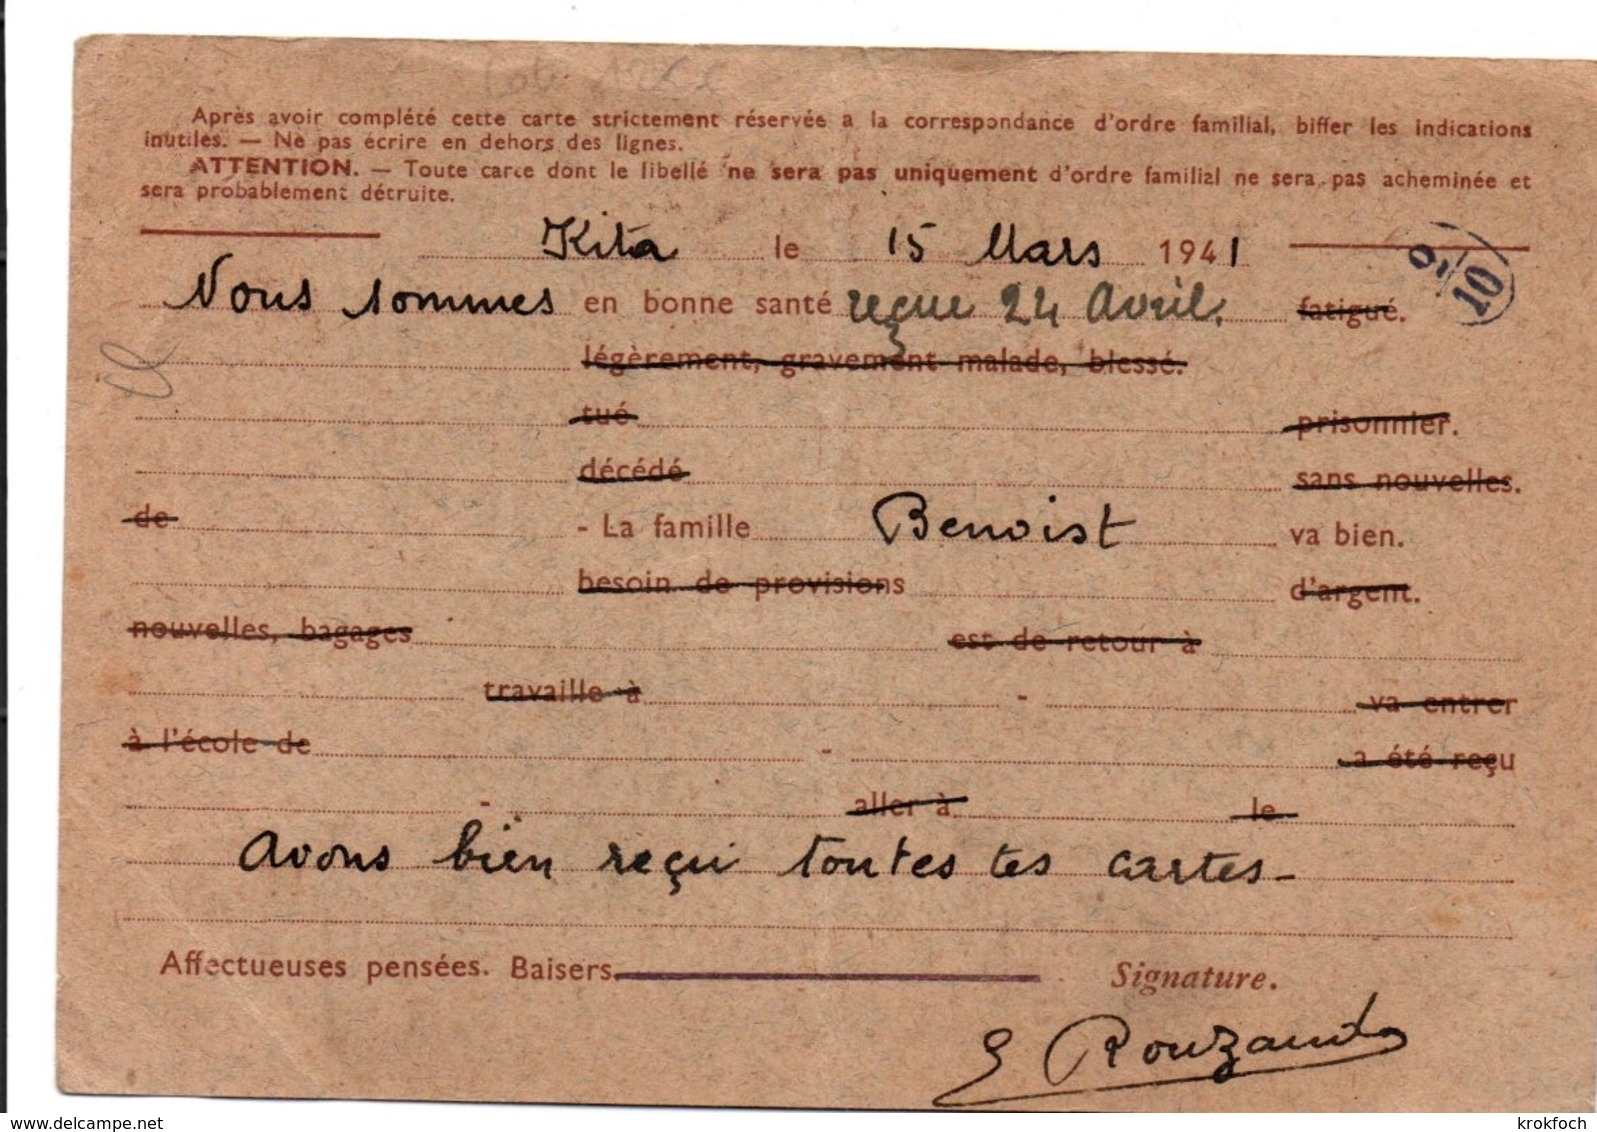 Après avoir complété cette carte strictement réservée a la correspondance d'ordre familial, biffer les indications
inutiles. — Ne pas écrire en dehors des lignes.
ATTENTION. — Toute carte dont le libellé ne sera pas uniquement d'ordre familial ne sera pas acheminée et
sera probablement détruite.
Kita le 15 Mars 1941
Nous sommes en bonne santé reçue 24 Avril. fatigué.
légèrement, gravement malade, blessé.
tué prisonnier.
décédé sans nouvelles.
de - La famille Benoist va bien.
besoin de provisions d'argent.
nouvelles, bagages est de retour à
travaille à - va entrer
à l'école de - a été reçu
- aller à le
Avons bien reçu toutes tes cartes -
Affectueuses pensées. Baisers. Signature.
10
delcampe.net
krokfoch